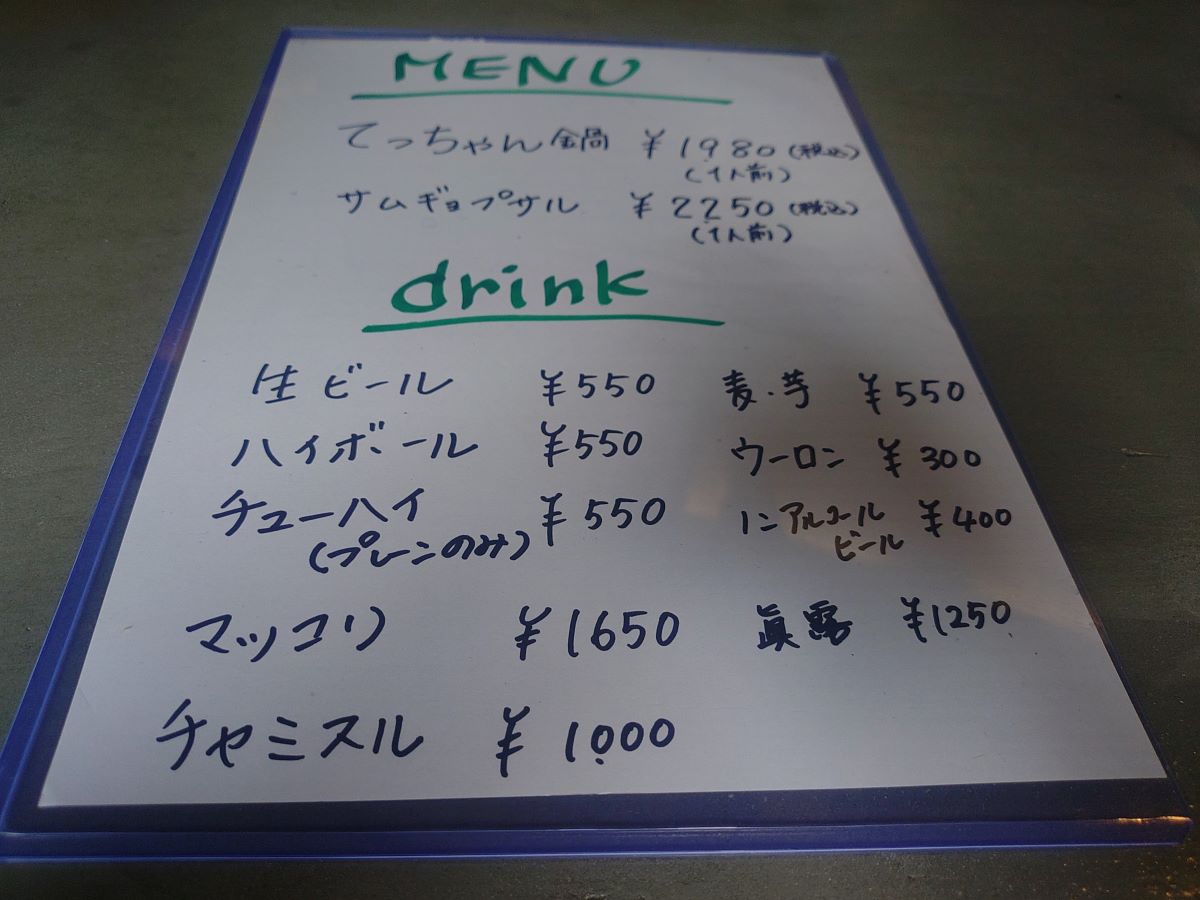 MENU
てっちゃん鍋 ¥1980(税込)
(1人前)
サムギョプサル ¥2250(税込)
(1人前)
drink
生ビール ¥550 麦・芋 ¥550
ハイボール ¥550 ウーロン ¥300
チューハイ ¥550 ノンアルコール ¥400
(プレーンのみ) ビール
マッコリ ¥1650 眞露 ¥1250
チャミスル ¥1.000